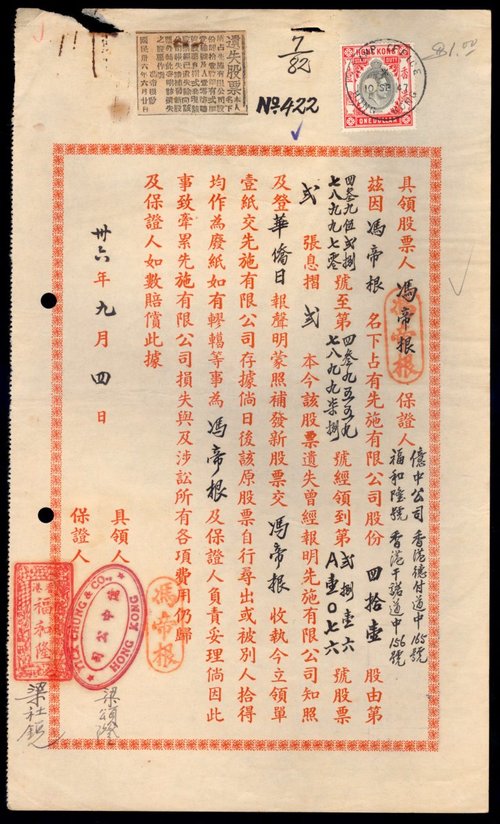 遺失股票
7/82
No 422
HONG KONG
STAMP DUTY
香
ONE DOLLAR
$1.00
具領股票人 馮帝根 保證人 億中公司 香港德付道中165號
福和隆號 香港干諾道中156號
茲因 馮帝根 名下占有先施有限公司股份 四拾壹 股由第
四叁九伍弍捌 號至第 四叁九五五九 號經領到第 弍捌壹六 號股票
七八九九七零 七八九九柒捌 A壹〇七六
弍 張息摺 弍 本今該股票遺失曾經報明先施有限公司知照
及登 華僑日 報聲明蒙照補發新股票交 馮帝根 收執今立領單
壹紙交先施有限公司存據倘日後該原股票自行尋出或被別人拾得
均作為廢紙如有轇轕等事為 馮帝根 及保證人負責妥理倘因此
事致牽累先施有限公司損失與及涉訟所有各項費用仍歸
及保證人如數賠償此據
具領人 馮帝根
保證人
YICK CHUNG & CO.,
HONG KONG
港
福永隆
梁社銳
卅六年 九 月 四 日